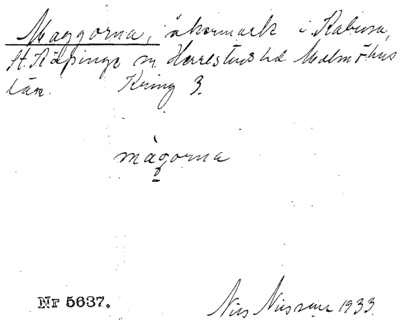 Maggorna, åkermark i Rabusa,
St. Köpinge sn Herrestads hd Malmöhus
län. Kring 3.
mågorna
Nr 5637.
Nils Nilsson 1933.